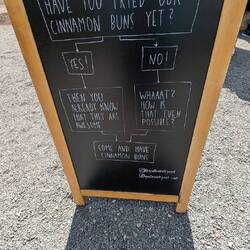 HAVE YOU TRIED OUR
CINNAMON BUNS YET?
YES!
NO!
THEN YOU
ALREADY KNOW
THAT THEY ARE
AWESOME
WHAAAT?
HOW IS
THAT EVEN
POSSIBLE?
COME AND HAVE
CINNAMON BUNS